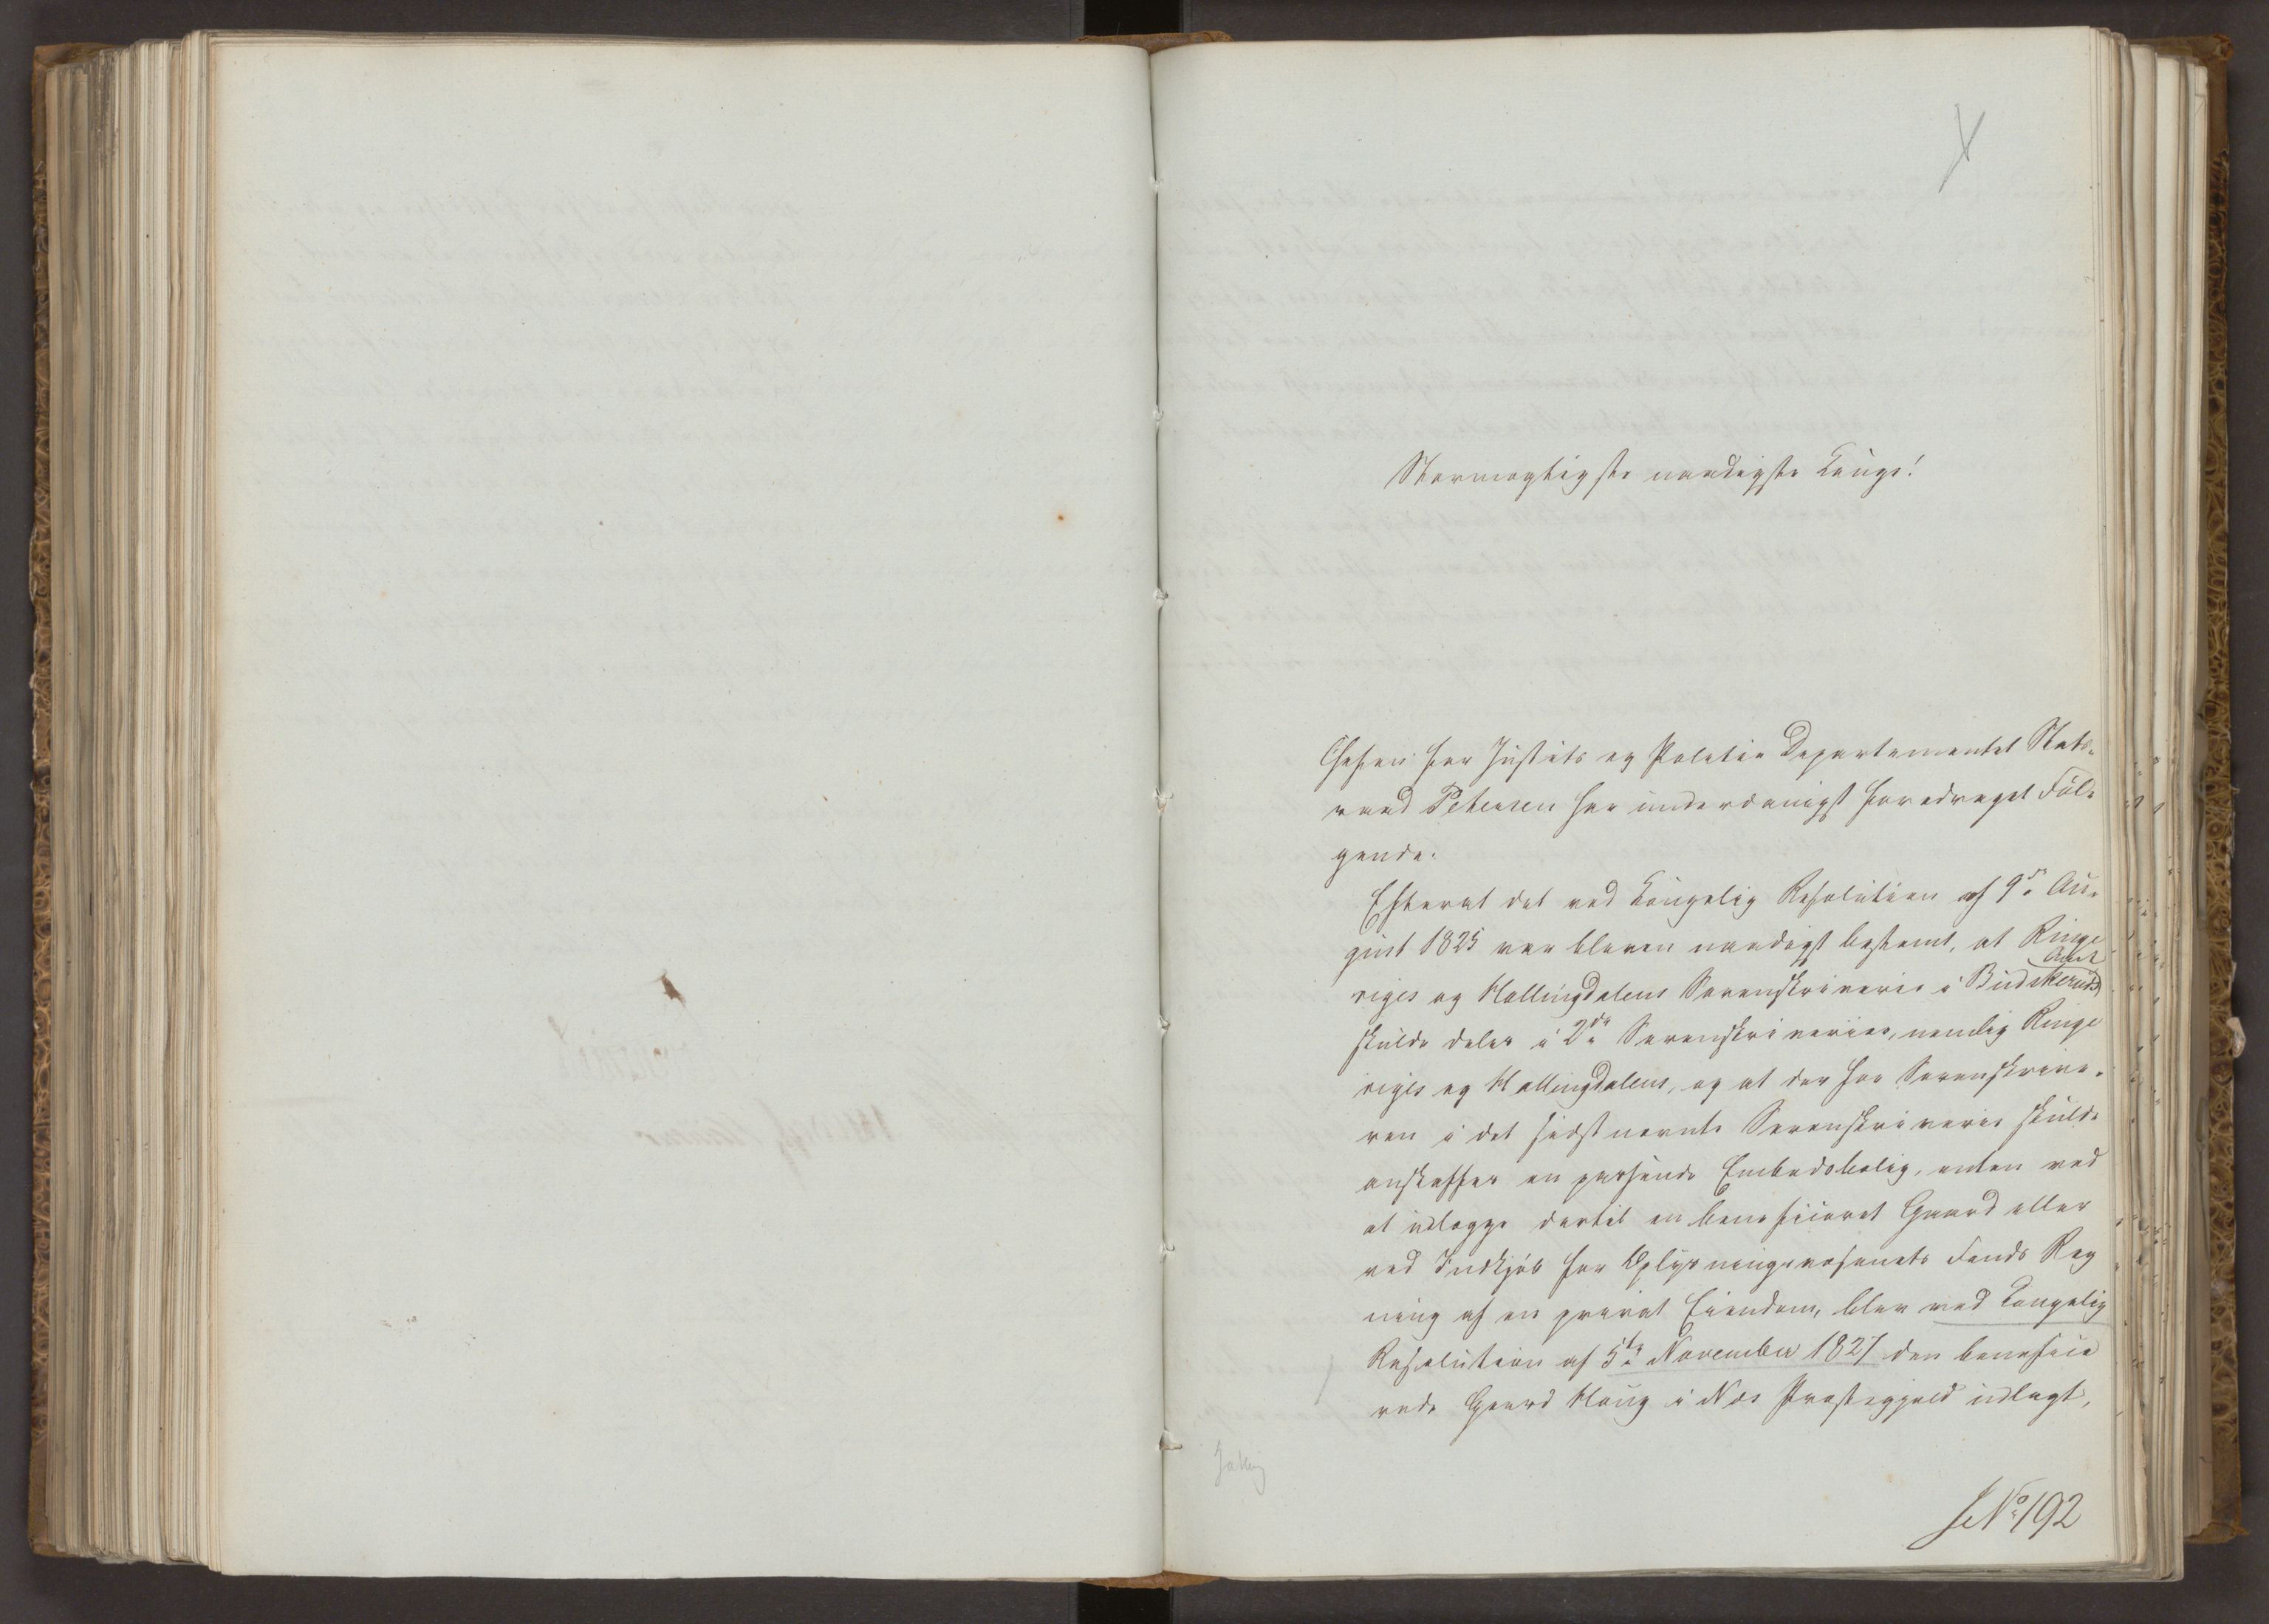 Stormægtigste naadigste Konge!
Chefen for Justits og Politie Departementet Stats-
raad Petersen har underdanigst foredraget Føl-
gende:
Efterat det ved Kongelig Resolution af 9de Au-
gust 1825 var bleven naadigst bestemt, at Ringe
riges og Hallingdalens Sorenskriverie i Buskeruds Amt
skulde deles i 2de Sorenskriverier, nemlig Ringe
riges og Hallingdalens, og at der for Sorenskrive-
ren i det sidstnævnte Sorenskriverie skulde
anskaffes en passende Embedsbolig, enten ved
at udlægge dertil en beneficeret Gaard eller
ved Indkjøb for Oplysningsvæsenets Fonds Reg
ning af en privat Eiendom, blev ved Kongelig
Resolution af 5te November 1827 den benefice
rede Gaard Haug i Næs Præstegjeld udlagt,
No 192